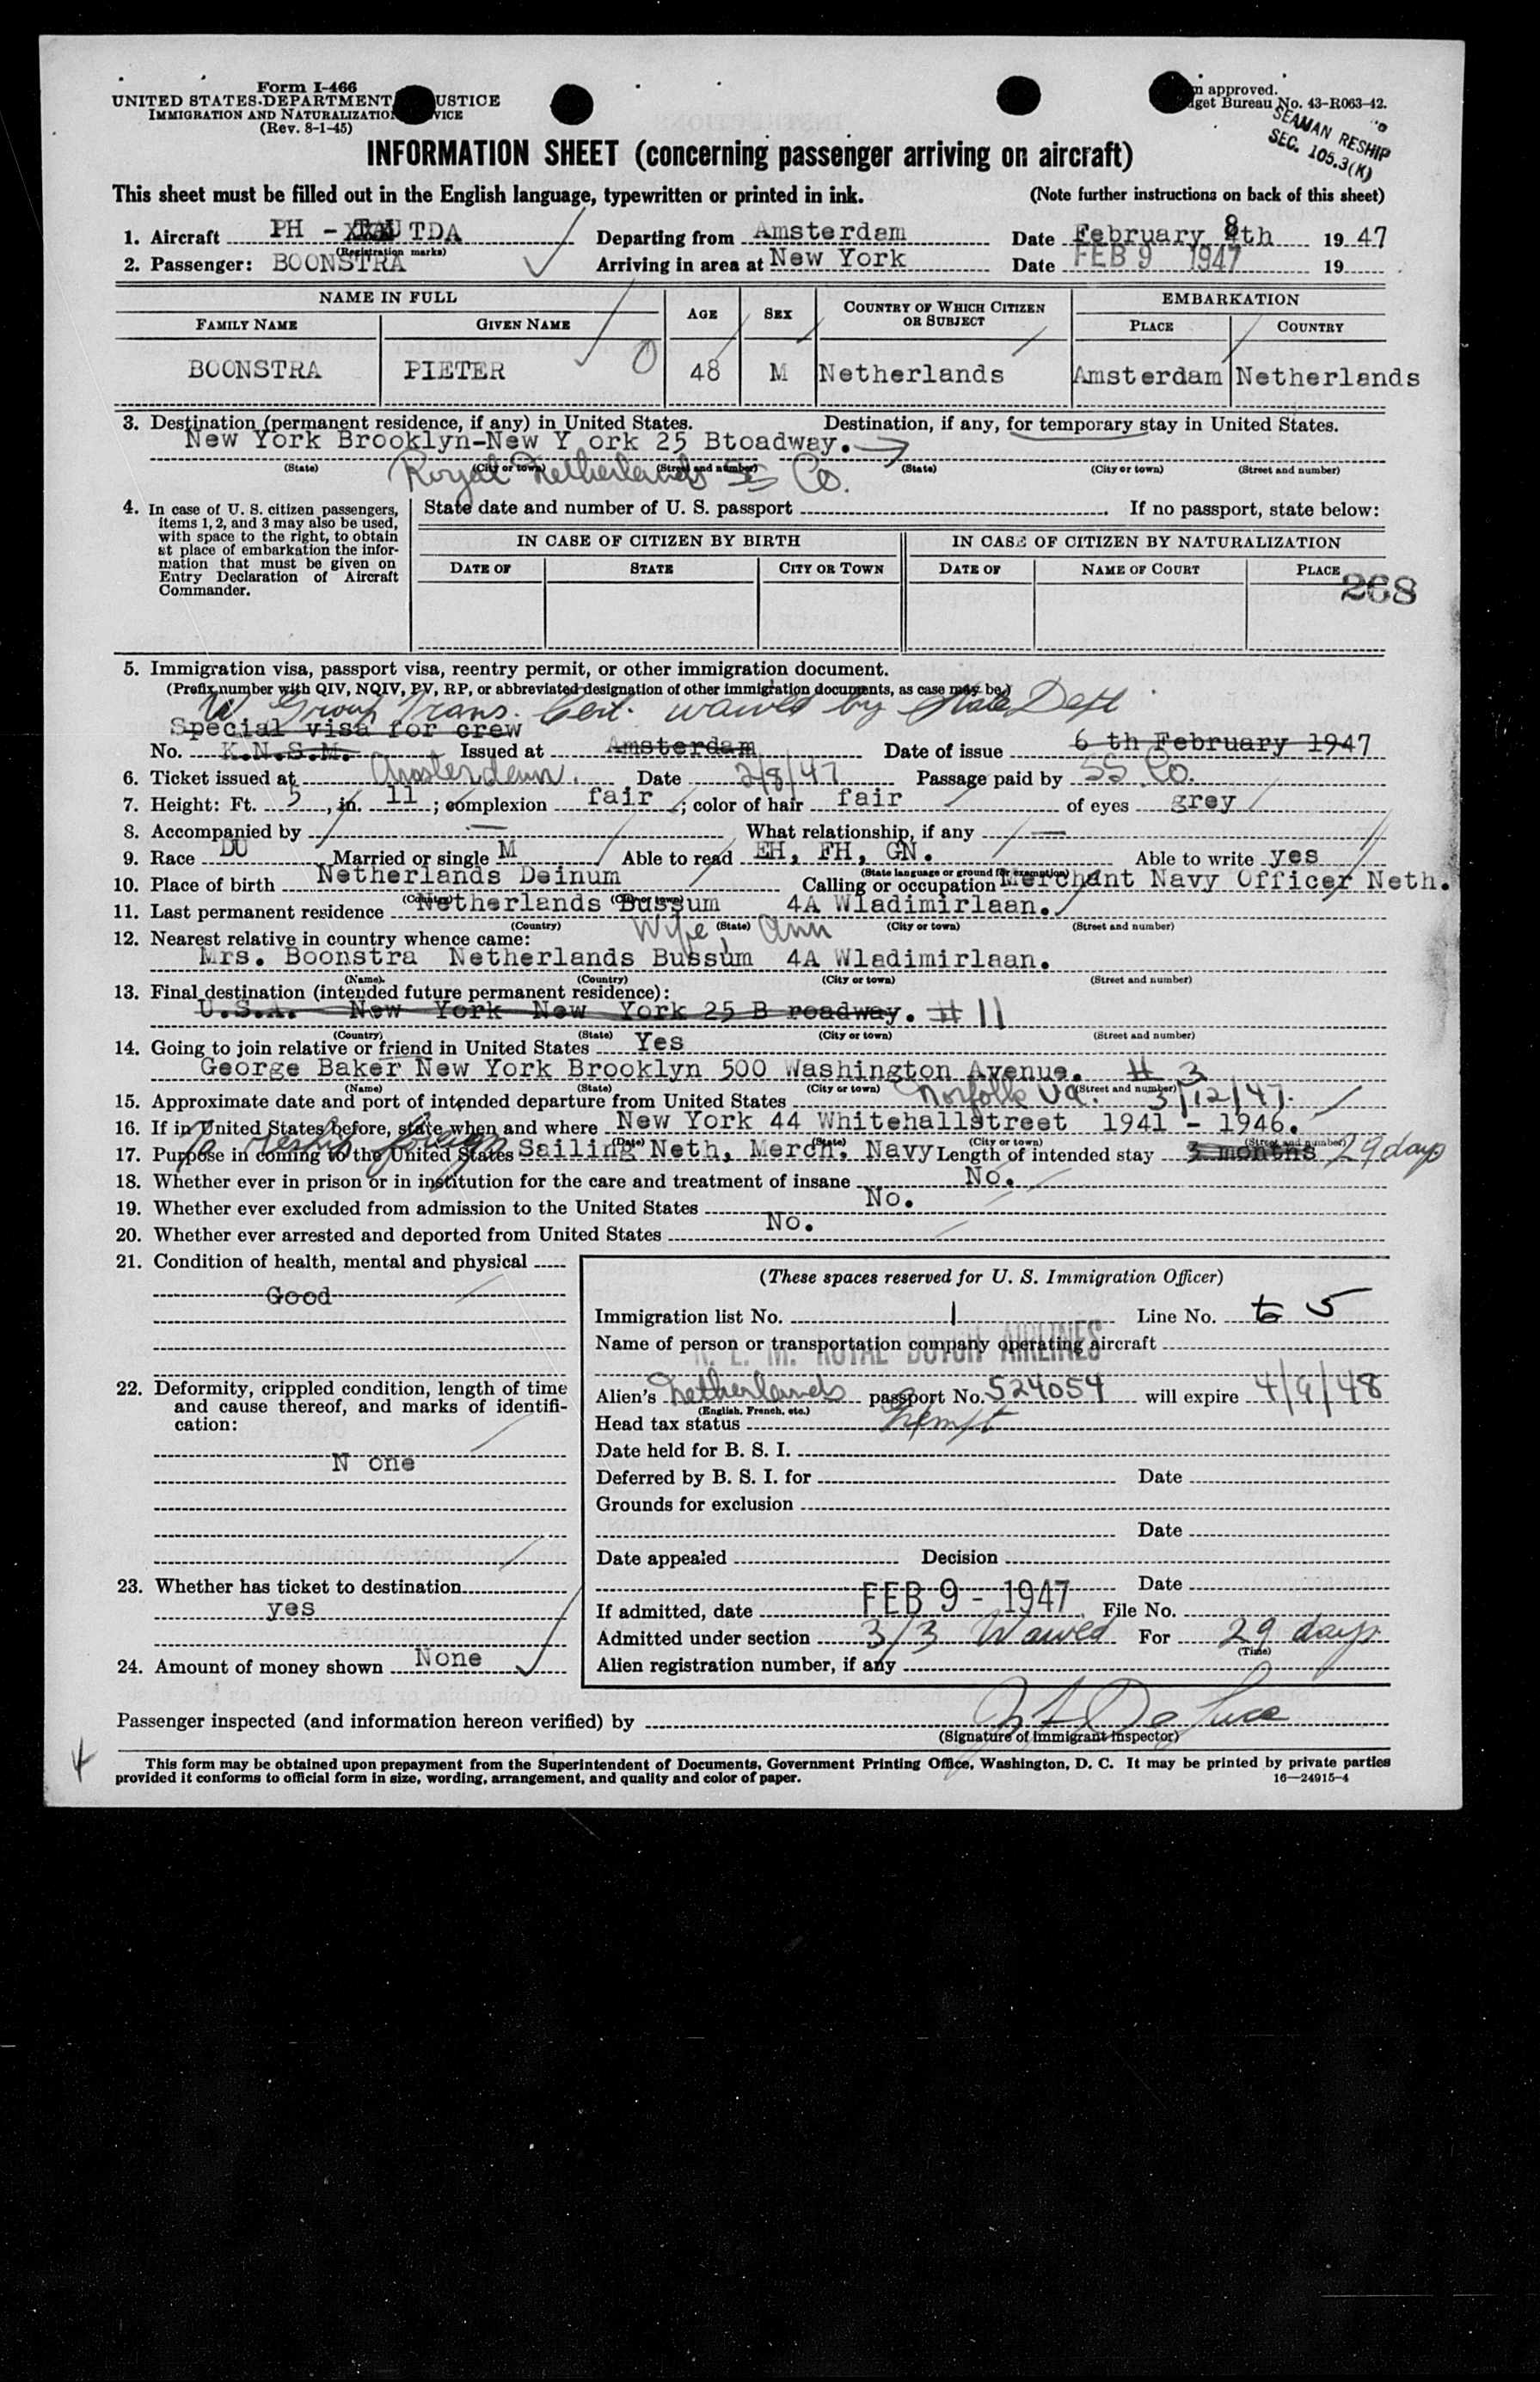 Form I-466
UNITED STATES DEPARTMENT USTICE
IMMIGRATION AND NATURALIZATION VICE
(Rev. 8-1-45)
approved.
get Bureau No. 43-R063-42.
SEAMAN RESHIP
SEC. 105.3(K)
INFORMATION SHEET (concerning passenger arriving on aircraft)
This sheet must be filled out in the English language, typewritten or printed in ink. (Note further instructions on back of this sheet)
1. Aircraft PH - TDA Departing from Amsterdam Date February 8th 19 47
(Registration marks)
2. Passenger: BOONSTRA Arriving in area at New York Date FEB 9 1947 19
NAME IN FULL AGE SEX COUNTRY OF WHICH CITIZEN OR SUBJECT EMBARKATION
FAMILY NAME GIVEN NAME PLACE COUNTRY
BOONSTRA PIETER 48 M Netherlands Amsterdam Netherlands
3. Destination (permanent residence, if any) in United States. Destination, if any, for temporary stay in United States.
New York Brooklyn-New Y ork 25 Btoadway.
(State) (City or town) (Street and number) (State) (City or town) (Street and number)
Royal Netherlands SS Co.
4. In case of U. S. citizen passengers, items 1, 2, and 3 may also be used, with space to the right, to obtain at place of embarkation the information that must be given on Entry Declaration of Aircraft Commander.
State date and number of U. S. passport If no passport, state below:
IN CASE OF CITIZEN BY BIRTH IN CASE OF CITIZEN BY NATURALIZATION
DATE OF STATE CITY OR TOWN DATE OF NAME OF COURT PLACE
268
5. Immigration visa, passport visa, reentry permit, or other immigration document.
(Prefix number with QIV, NQIV, PV, RP, or abbreviated designation of other immigration documents, as case may be)
Group Trans. Cert. waived by State Dept
Special visa for crew
No. K.N.S.M. Issued at Amsterdam Date of issue 6 th February 1947
6. Ticket issued at Amsterdam. Date 2/8/47 Passage paid by SS Co.
7. Height: Ft. 5, in. 11; complexion fair; color of hair fair of eyes grey
8. Accompanied by — What relationship, if any —
9. Race DU Married or single M Able to read EH, FH, GN. Able to write yes
(State language or ground for exemption)
10. Place of birth Netherlands Deinum Calling or occupation Merchant Navy Officer Neth.
(Country) (City or town)
11. Last permanent residence Netherlands Bussum 4A Wladimirlaan.
(Country) (State) (City or town) (Street and number)
Wife, Ann
12. Nearest relative in country whence came:
Mrs. Boonstra Netherlands Bussum 4A Wladimirlaan.
(Name) (Country) (City or town) (Street and number)
13. Final destination (intended future permanent residence):
U.S.A. New York New York 25 B roadway. # 11
(Country) (State) (City or town) (Street and number)
14. Going to join relative or friend in United States Yes
George Baker New York Brooklyn 500 Washington Avenue. # 3
(Name) (State) (City or town) (Street and number)
15. Approximate date and port of intended departure from United States Norfolk Va. 3/12/47.
16. If in United States before, state when and where New York 44 Whitehallstreet 1941 - 1946.
(Date) (State) (City or town) (Street and number)
To reship foreign
17. Purpose in coming to the United States Sailing Neth, Merch. Navy Length of intended stay 3 months 29 days
18. Whether ever in prison or in institution for the care and treatment of insane No.
19. Whether ever excluded from admission to the United States No.
20. Whether ever arrested and deported from United States No.
21. Condition of health, mental and physical
Good
22. Deformity, crippled condition, length of time and cause thereof, and marks of identification:
N one
23. Whether has ticket to destination
yes
24. Amount of money shown None
(These spaces reserved for U. S. Immigration Officer)
Immigration list No. 1 Line No. 6 5
Name of person or transportation company operating aircraft
K. L. M. ROYAL DUTCH AIRLINES
Alien's Netherlands passport No. 524054 will expire 4/9/48
(English, French, etc.)
Head tax status Exempt
Date held for B. S. I.
Deferred by B. S. I. for Date
Grounds for exclusion
Date
Date appealed Decision
Date
If admitted, date FEB 9 - 1947 File No.
Admitted under section 3/3 Waived For 29 days
(Time)
Alien registration number, if any
Passenger inspected (and information hereon verified) by
(Signature of immigrant inspector)
This form may be obtained upon prepayment from the Superintendent of Documents, Government Printing Office, Washington, D. C. It may be printed by private parties
provided it conforms to official form in size, wording, arrangement, and quality and color of paper. 16—24915-4